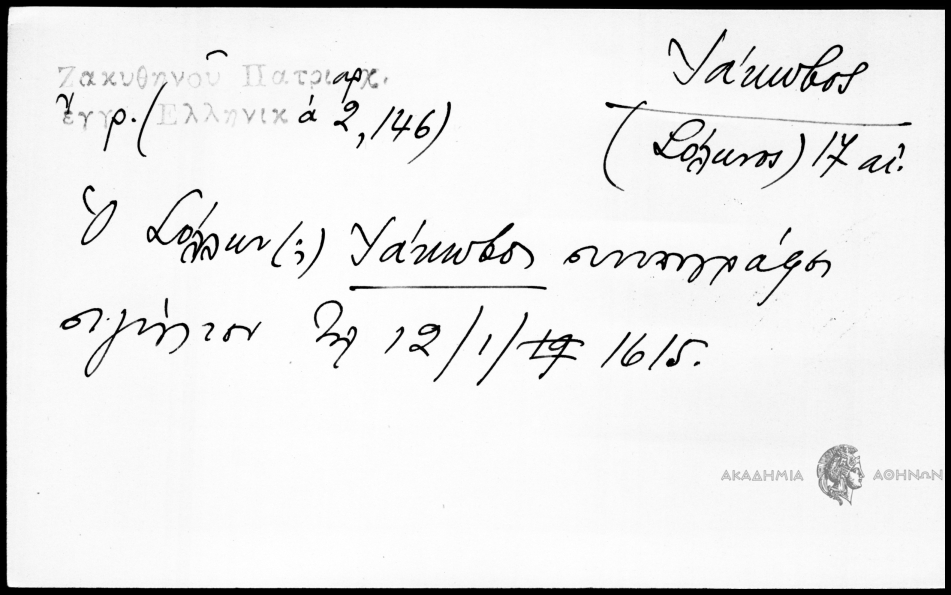 Ζακυθηνοῦ Πατριαρχ.
ἔγγρ. (Ἑλληνικά 2, 146)
Ἰάκωβος
( ) 17 αἰ.
Ὁ (;) Ἰάκωβος συνυπογράφει
σιγίλλιον τῇ 12/1/19 1615.
ΑΚΑΔΗΜΙΑ ΑΘΗΝΩΝ